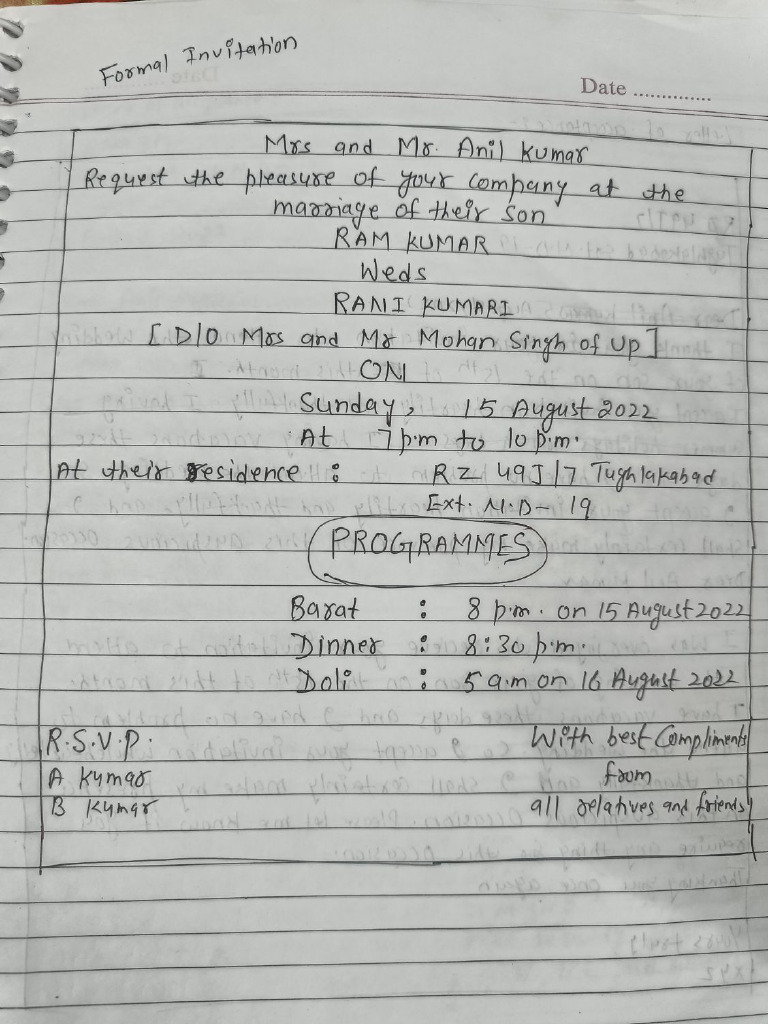 Formal Invitation
Date ..............
Mrs and Mr. Anil Kumar
Request the pleasure of your company at the
marriage of their son
RAM KUMAR
Weds
RANI KUMARI
[D/O Mrs and Mr Mohan Singh of Up]
ON
Sunday, 15 August 2022
At 7 p.m to 10 p.m.
At their residence : RZ 49J/7 Tughlakabad
Ext. N.D- 19
PROGRAMMES
Barat : 8 p.m. on 15 August 2022
Dinner : 8:30 p.m.
Doli : 5 a.m on 16 August 2022
R.S.V.P. With best Compliments
A Kumar from
B Kumar all relatives and friends